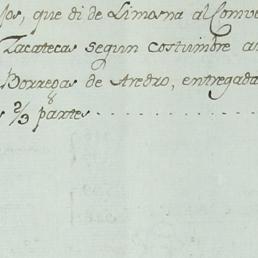 los, que di de Limosna al Conve
Zacatecas segun costumbre a
Borregas de Aredro, entregada
s 2/3 partes